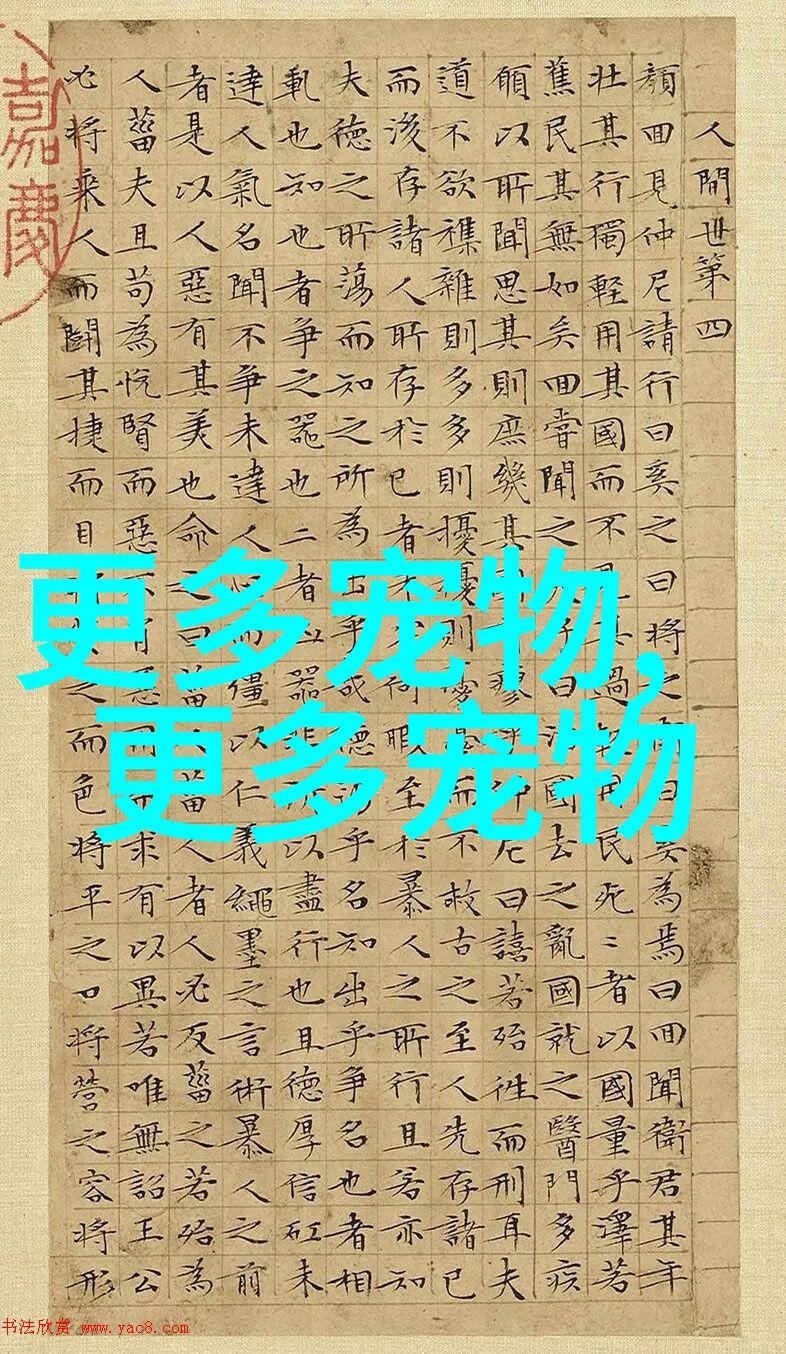 人間世第四
顏囬見仲尼請行曰奚之曰將之曰奚為焉曰囬聞衛君其年
壯其行獨輕用其國而不其過用民死〻者以國量乎澤若
蕉民其無如矣囬嘗聞之子曰國去之亂國就之醫門多疾
願以所聞思其則庶幾其瘳仲尼曰譆若殆往而刑耳夫
道不欲襍雜則多多則擾擾則而不救古之至人先存諸已
而後存諸人所存於已者何暇至於暴人之所行且若亦知
夫德之所蕩而知之所為出乎哉德乎名知出乎爭名也者相
軋也知也者爭之器也二者器以盡行也且德厚信矼未
達人氣名聞不爭未達人而彊以仁義繩墨之言術暴人之前
者是以人惡有其美也命之曰菑人者人必反菑之若殆為
人菑夫且苟為悅賢而惡求有以異若唯無詔王公
必將乘人而鬭其捷而目之而色將平之口將營之容將形
嘉慶
更多宠物,
更多宠物
书法欣赏 www.yac8.com